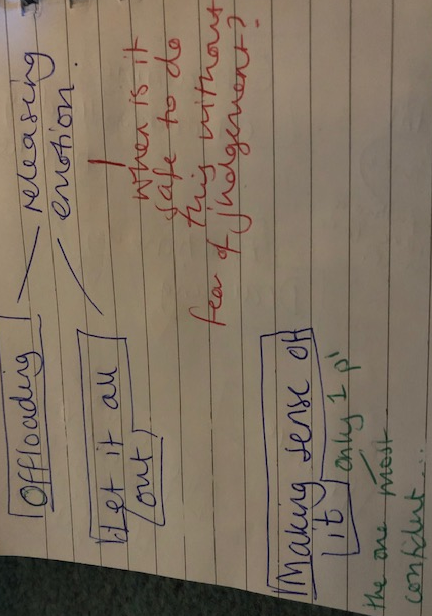 Offloading
releasing
emotion.
Let it all
out
When is it
safe to do
this without
fear of judgement?
Making sense of
it
only 1 p'
the one most
confident...